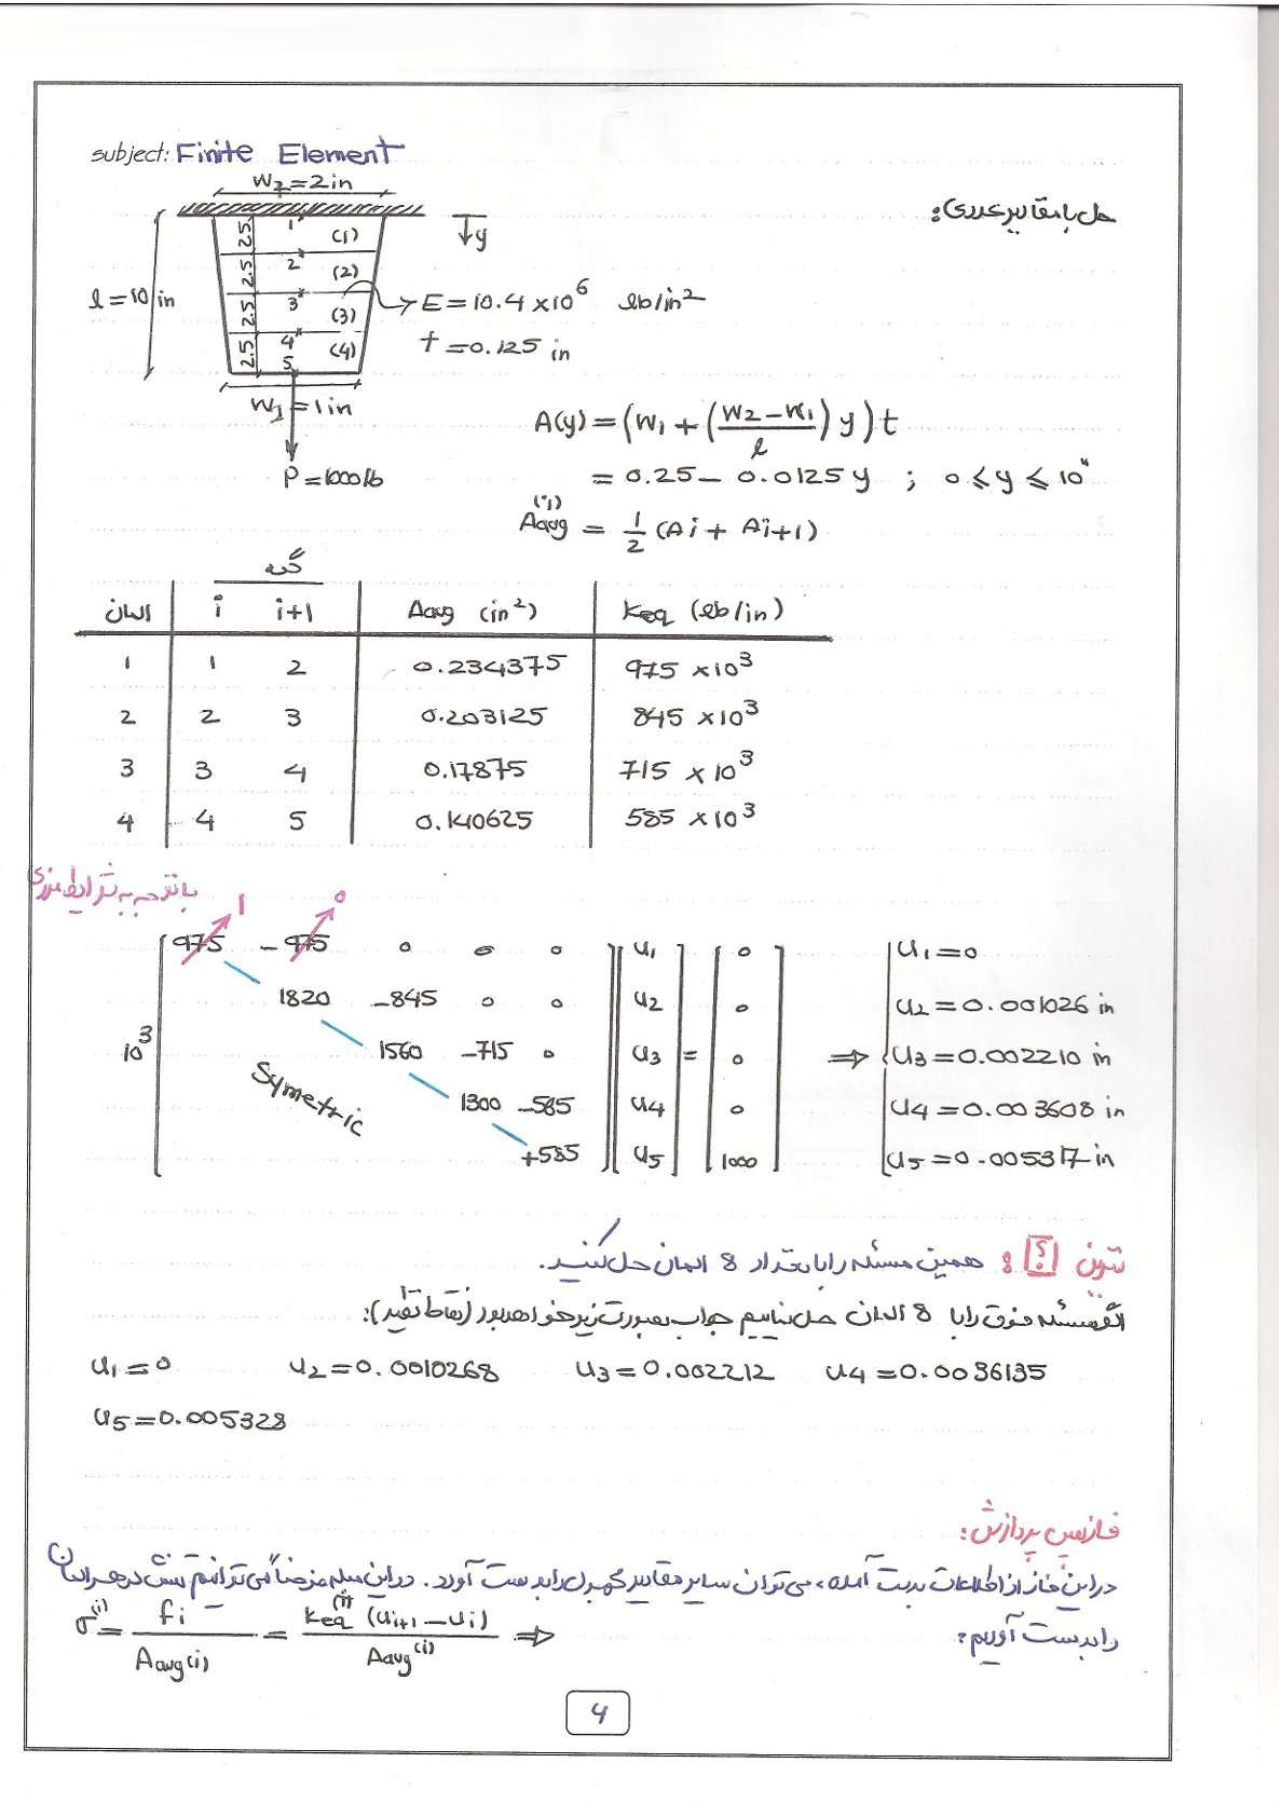 subject: Finite Element
حل با مقادیر عددی:
W2 = 2 in
y
l = 10 in
2.5 1 (1)
2.5 2 (2)
2.5 3 (3)
2.5 4 (4)
5
E = 10.4 × 10⁶ lb/in²
t = 0.125 in
W1 = 1 in
P = 1000 lb
A(y) = (W1 + ((W2 - W1)/l) y) t
= 0.25 - 0.0125 y ; 0 ⩽ y ⩽ 10"
Aavg⁽ⁱ⁾ = 1/2 (Ai + Ai+1)
گره
المان | i i+1 | Aavg (in²) | Keq (lb/in)
1 | 1 2 | 0.234375 | 975 × 10³
2 | 2 3 | 0.203125 | 845 × 10³
3 | 3 4 | 0.17875 | 715 × 10³
4 | 4 5 | 0.140625 | 585 × 10³
با توجه به شرایط مرزی
1 0
975 -975 0 0 0 u1 0 u1 = 0
1820 -845 0 0 u2 0 u2 = 0.001026 in
10³ 1560 -715 0 u3 = 0 ⇒ u3 = 0.002210 in
Symetric 1300 -585 u4 0 u4 = 0.003608 in
+585 u5 1000 u5 = 0.005317 in
تمرین ؟: همین مسئله را با تعداد 8 المان حل کنید.
اگر مسئله فوق را با 8 المان حل نمائیم جواب بصورت زیر خواهد بود (نقاط نظیر):
u1 = 0 u2 = 0.0010268 u3 = 0.002212 u4 = 0.0036135
u5 = 0.005328
فاز پس پردازش:
در این فاز از اطلاعات بدست آمده، می توان سایر مقادیر مجهول را بدست آورد. در این مسئله مثلاً می توانیم تنش در هر المان
را بدست آوریم:
σ⁽ⁱ⁾ = fi / Aavg(i) = Keq⁽ⁱ⁾ (ui+1 - ui) / Aavg⁽ⁱ⁾ ⇒
4